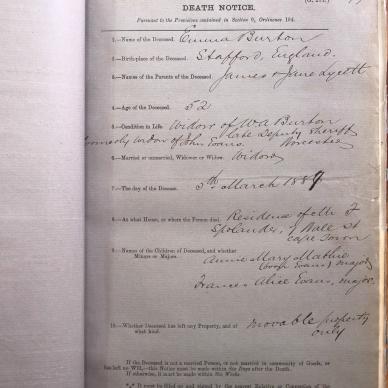 DEATH NOTICE.
Pursuant to the Provisions contained in Section 9, Ordinance 104.
1.—Name of the Deceased. Emma Burton
2.—Birth-place of the Deceased. Stafford, England.
3.—Names of the Parents of the Deceased.
James & Jane Lycett
4.—Age of the Deceased. 52
5.—Condition in Life. Widow of W A Burton
late Deputy Sheriff
formerly widow of John Evans. Worcester
6.—Married or unmarried, Widower or Widow. Widow
7.—The day of the Decease. 5th March 1889
8.—At what House, or where the Person died. Residence of Mr F
Spolander, 7 Wale St
Cape Town
9.—Names of the Children of Deceased, and whether
Minors or Majors.
Annie Mary Mathie
(born Evans) major
Frances Alice Evans, major.
10.—Whether Deceased has left any Property, and of
what kind.
Movable property
only
If the Deceased is not a married Person, or not married in community of Goods, or
has left no WILL,—this Notice must be made within Ten Days after the Death.
If otherwise, it must be made within Six Weeks.
It must be filled up and signed by the nearest Relative or Connection of the